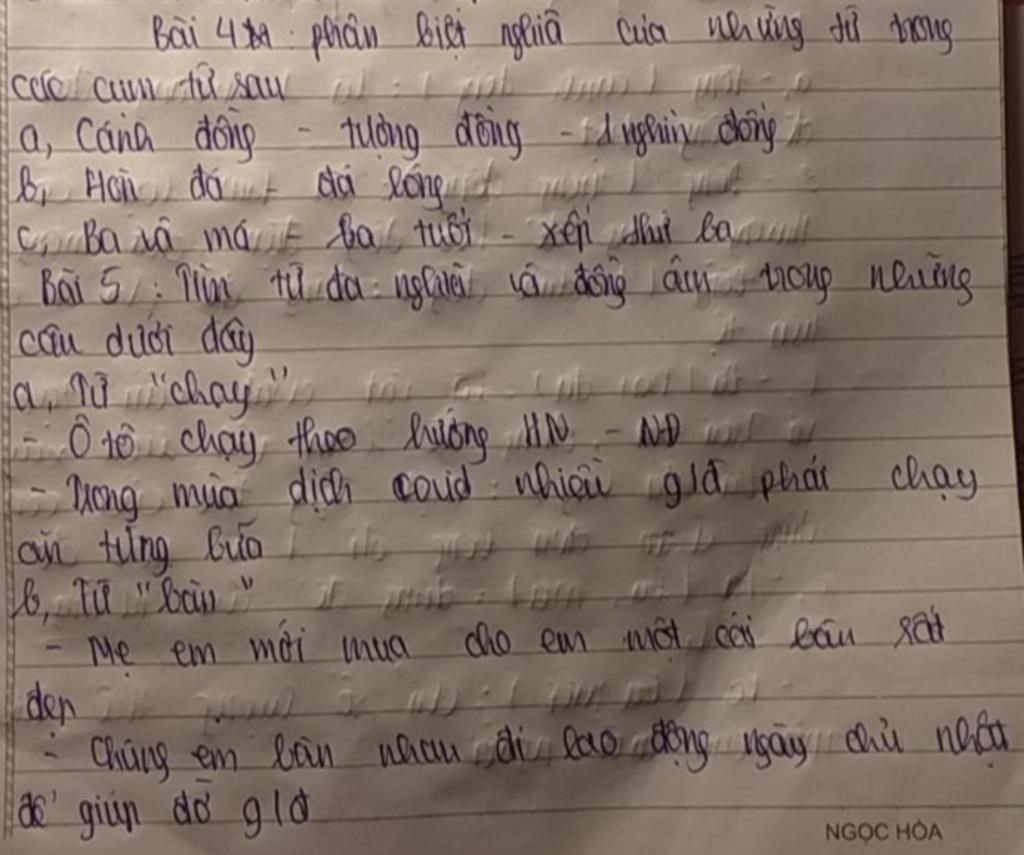 Bài 4: phân biệt nghĩa của những từ trong
các cụm từ sau
a, Cánh đồng - tượng đồng - 1 nghìn đồng
b, Hòn đá - đá bóng
c, Ba và má - ba tuổi - xếp thứ ba
Bài 5: Tìm từ đa nghĩa và đồng âm trong những
câu dưới đây
a, Từ "chạy"
- Ô tô chạy theo hướng HN - NĐ
- Trong mùa dịch covid nhiều gđ phải chạy
ăn từng bữa
b, Từ "bàn"
- Mẹ em mới mua cho em một cái bàn rất
đẹp
- Chúng em bàn nhau đi lao động ngày chủ nhật
để giúp đỡ gđ
NGỌC HÒA